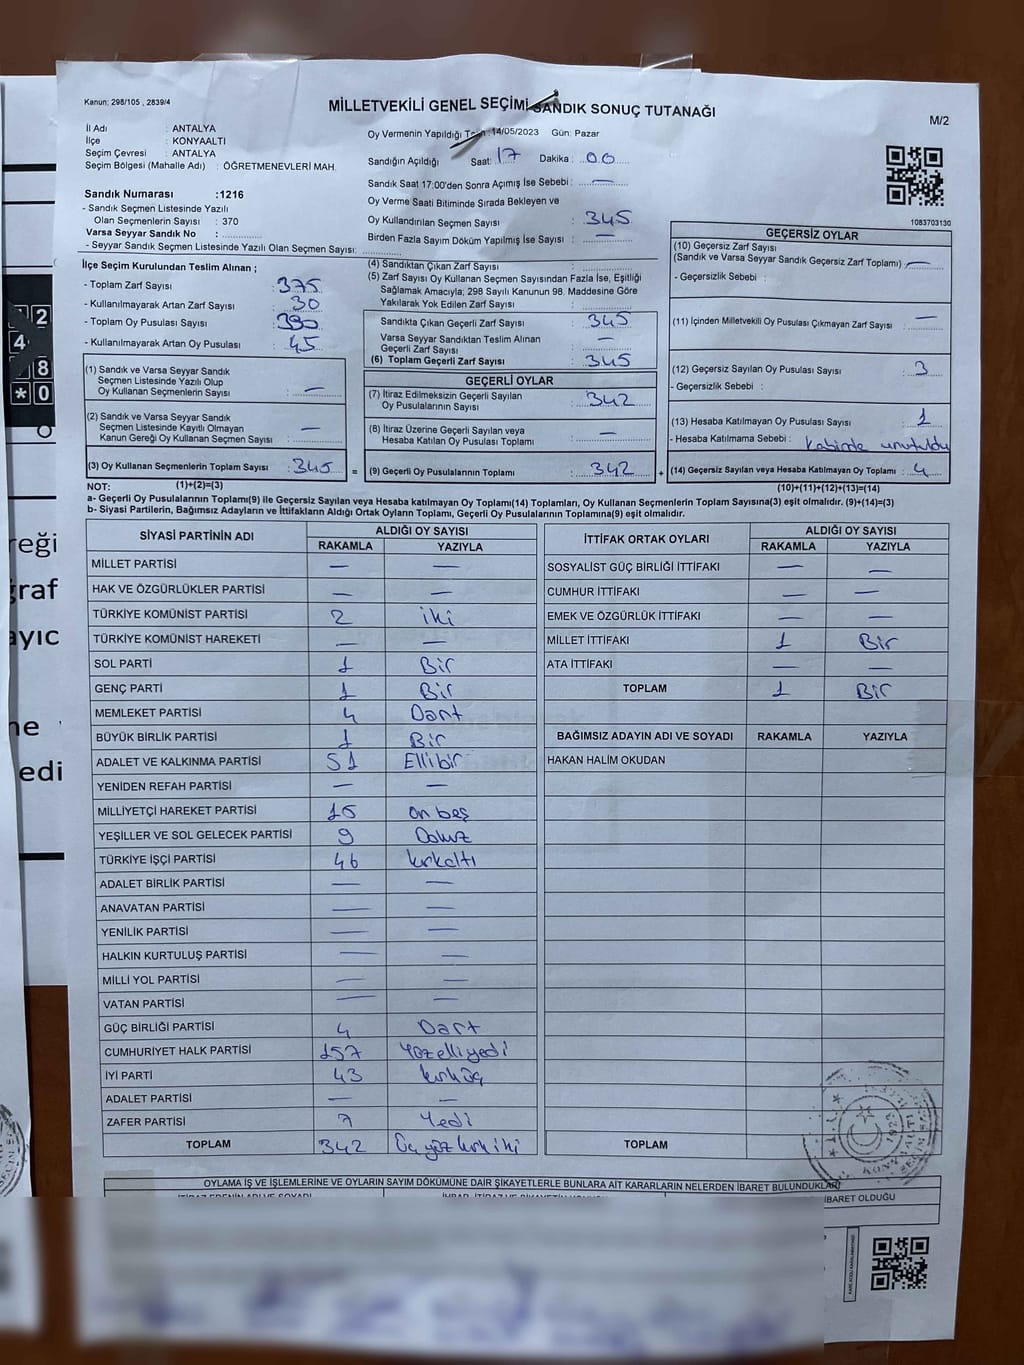 Kanun: 298/105 , 2839/4
MİLLETVEKİLİ GENEL SEÇİMİ SANDIK SONUÇ TUTANAĞI
M/2
İl Adı : ANTALYA
İlçe : KONYAALTI
Seçim Çevresi : ANTALYA
Seçim Bölgesi (Mahalle Adı) : ÖĞRETMENEVLERİ MAH.
Sandık Numarası :1216
- Sandık Seçmen Listesinde Yazılı
Olan Seçmenlerin Sayısı : 370
Varsa Seyyar Sandık No :
- Seyyar Sandık Seçmen Listesinde Yazılı Olan Seçmen Sayısı:
Oy Vermenin Yapıldığı :14/05/2023 Gün: Pazar
Sandığın Açıldığı Saat: 17 Dakika : 00
Sandık Saat 17:00'den Sonra Açımış İse Sebebi : —
Oy Verme Saati Bitiminde Sırada Bekleyen ve
Oy Kullandırılan Seçmen Sayısı : 345
Birden Fazla Sayım Döküm Yapılmış İse Sayısı : —
1083703130
İlçe Seçim Kurulundan Teslim Alınan ;
- Toplam Zarf Sayısı : 375
- Kullanılmayarak Artan Zarf Sayısı : 30
- Toplam Oy Pusulası Sayısı : 390
- Kullanılmayarak Artan Oy Pusulası : 45
(1) Sandık ve Varsa Seyyar Sandık
Seçmen Listesinde Yazılı Olup
Oy Kullanan Seçmenlerin Sayısı : —
(2) Sandık ve Varsa Seyyar Sandık
Seçmen Listesinde Kayıtlı Olmayan
Kanun Gereği Oy Kullanan Seçmen Sayısı : —
(3) Oy Kullanan Seçmenlerin Toplam Sayısı : 345 =
(1)+(2)=(3)
(4) Sandıktan Çıkan Zarf Sayısı :
(5) Zarf Sayısı Oy Kullanan Seçmen Sayısından Fazla İse, Eşitliği
Sağlamak Amacıyla; 298 Sayılı Kanunun 98. Maddesine Göre
Yakılarak Yok Edilen Zarf Sayısı :
Sandıkta Çıkan Geçerli Zarf Sayısı : 345
Varsa Seyyar Sandıktan Teslim Alınan
Geçerli Zarf Sayısı : —
(6) Toplam Geçerli Zarf Sayısı : 345
GEÇERLİ OYLAR
(7) İtiraz Edilmeksizin Geçerli Sayılan
Oy Pusulalarının Sayısı : 342
(8) İtiraz Üzerine Geçerli Sayılan veya
Hesaba Katılan Oy Pusulası Toplamı : —
(9) Geçerli Oy Pusulalarının Toplamı : 342 +
GEÇERSİZ OYLAR
(10) Geçersiz Zarf Sayısı
(Sandık ve Varsa Seyyar Sandık Geçersiz Zarf Toplamı) : —
- Geçersizlik Sebebi :
(11) İçinden Milletvekili Oy Pusulası Çıkmayan Zarf Sayısı : —
(12) Geçersiz Sayılan Oy Pusulası Sayısı : 3
- Geçersizlik Sebebi :
(13) Hesaba Katılmayan Oy Pusulası Sayısı : 1
- Hesaba Katılmama Sebebi : Kabinde unutuldu
(14) Geçersiz Sayılan veya Hesaba Katılmayan Oy Toplamı : 4
(10)+(11)+(12)+(13)=(14)
NOT:
a- Geçerli Oy Pusulalarının Toplamı(9) ile Geçersiz Sayılan veya Hesaba katılmayan Oy Toplamı(14) Toplamları, Oy Kullanan Seçmenlerin Toplam Sayısına(3) eşit olmalıdır. (9)+(14)=(3)
b- Siyasi Partilerin, Bağımsız Adayların ve İttifakların Aldığı Ortak Oyların Toplamı, Geçerli Oy Pusulalarının Toplamına(9) eşit olmalıdır.
SİYASİ PARTİNİN ADI ALDIĞI OY SAYISI
RAKAMLA YAZIYLA
MİLLET PARTİSİ — —
HAK VE ÖZGÜRLÜKLER PARTİSİ — —
TÜRKİYE KOMÜNİST PARTİSİ 2 iki
TÜRKİYE KOMÜNİST HAREKETİ — —
SOL PARTİ 1 Bir
GENÇ PARTİ 1 Bir
MEMLEKET PARTİSİ 4 Dört
BÜYÜK BİRLİK PARTİSİ 1 Bir
ADALET VE KALKINMA PARTİSİ 51 Ellibir
YENİDEN REFAH PARTİSİ — —
MİLLİYETÇİ HAREKET PARTİSİ 15 on beş
YEŞİLLER VE SOL GELECEK PARTİSİ 9 Dokuz
TÜRKİYE İŞÇİ PARTİSİ 46 kırkaltı
ADALET BİRLİK PARTİSİ — —
ANAVATAN PARTİSİ — —
YENİLİK PARTİSİ — —
HALKIN KURTULUŞ PARTİSİ — —
MİLLİ YOL PARTİSİ — —
VATAN PARTİSİ — —
GÜÇ BİRLİĞİ PARTİSİ 4 Dört
CUMHURİYET HALK PARTİSİ 157 Yüzelliyedi
İYİ PARTİ 43 kırküç
ADALET PARTİSİ — —
ZAFER PARTİSİ 7 Yedi
TOPLAM 342 Üçyüz kırkiki
İTTİFAK ORTAK OYLARI ALDIĞI OY SAYISI
RAKAMLA YAZIYLA
SOSYALİST GÜÇ BİRLİĞİ İTTİFAKI — —
CUMHUR İTTİFAKI — —
EMEK VE ÖZGÜRLÜK İTTİFAKI — —
MİLLET İTTİFAKI 1 Bir
ATA İTTİFAKI — —
TOPLAM 1 Bir
BAĞIMSIZ ADAYIN ADI VE SOYADI RAKAMLA YAZIYLA
HAKAN HALİM OKUDAN
TOPLAM
OYLAMA İŞ VE İŞLEMLERİNE VE OYLARIN SAYIM DÖKÜMÜNE DAİR ŞİKAYETLERLE BUNLARA AİT KARARLARIN NELERDEN İBARET BULUNDUKLARI
İBARET OLDUĞU
2
4
8
* 0
reği
graf
ayıc
ne
edi